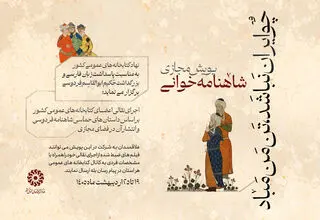 چو ایران نباشد تن من مباد
پویش مجازی
شاهنامه‌خوانی
نهاد کتابخانه‌های عمومی کشور
به مناسبت پاسداشت زبان فارسی و
بزرگداشت حکیم ابوالقاسم فردوسی
برگزار می نماید:
اجرای نقالی اعضای کتابخانه‌های عمومی کشور
بر اساس داستان‌های حماسی شاهنامه فردوسی
و انتشار آن در فضای مجازی
علاقمندان به شرکت در این پویش می توانند
فیلم‌های ضبط شده از اجرای نقالی خود را همراه با
مشخصات فردی به کانال کتابخانه های عمومی
استان در پیام رسان بله ارسال نمایند.
۱۹ تا ۲۶ اردیبهشت ماه ۱۴۰۲